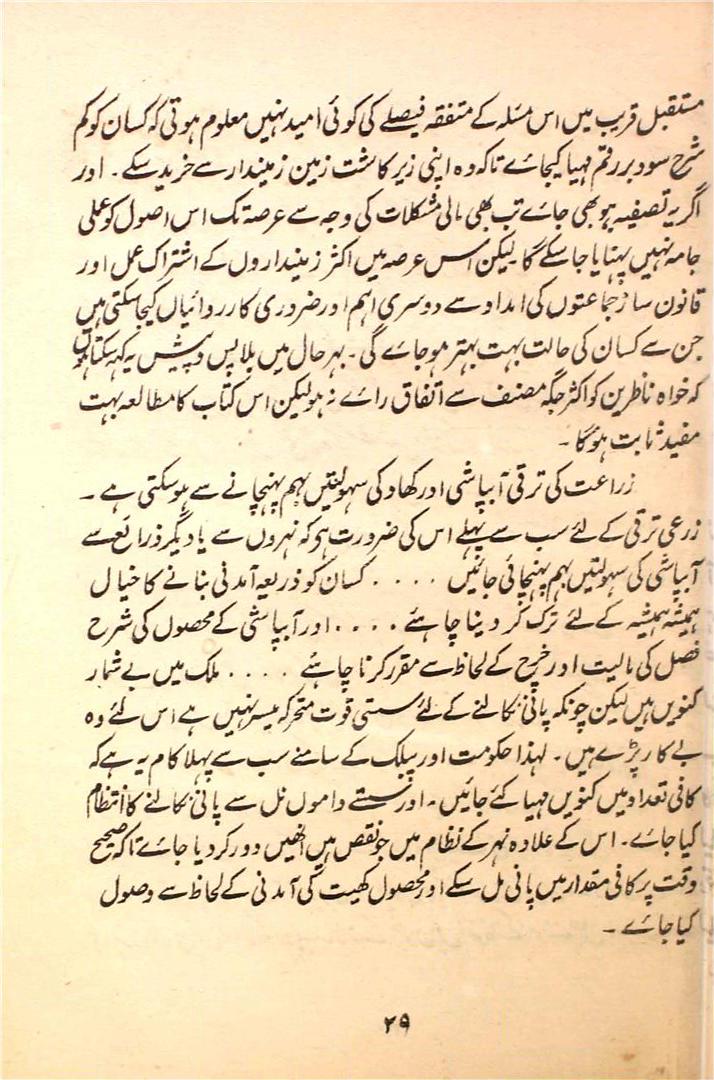 مستقبل قریب میں اس مسئلہ کے متفقہ فیصلے کی کوئی امید نہیں معلوم ہوتی کہ کسان کو کم
شرح سود پر رقم مہیا کیجائے تاکہ وہ اپنی زیر کاشت زمین زمیندار سے خرید سکے۔ اور
اگر یہ تصفیہ ہو بھی جائے تب بھی مالی مشکلات کی وجہ سے عرصہ تک اس اصول کو عملی
جامہ نہیں پہنایا جاسکے گا لیکن اس عرصہ میں اکثر زمینداروں کے اشتراک عمل اور
قانون ساز جماعتوں کی امداد سے دوسری اہم اور ضروری کارروائیاں کیجاسکتی ہیں
جن سے کسان کی حالت بہت بہتر ہوجائے گی۔ بہر حال میں بلا پس و پیش یہ کہہ سکتا ہوں
کہ خواہ ناظرین کو اکثر جگہ مصنف سے اتفاق رائے نہ ہو لیکن اس کتاب کا مطالعہ بہت
مفید ثابت ہوگا۔
زراعت کی ترقی آبپاشی اور کھاد کی سہولتیں بہم پہنچانے سے ہوسکتی ہے۔
زرعی ترقی کے لئے سب سے پہلے اس کی ضرورت ہی کہ نہروں سے یا دیگر ذرائع سے
آبپاشی کی سہولتیں بہم پہنچائی جائیں .... کسان کو ذریعہ آمدنی بنانے کا خیال
ہمیشہ ہمیشہ کے لئے ترک کر دینا چاہئے .... اور آبپاشی کے محصول کی شرح
فصل کی مالیت اور خرچ کے لحاظ سے مقرر کرنا چاہئے .... ملک میں بے شمار
کنویں ہیں لیکن چونکہ پانی نکالنے کے لئے سستی قوت متحرکہ میسر نہیں ہے اس لئے وہ
بے کار پڑے ہیں۔ لہذا حکومت اور پبلک کے سامنے سب سے پہلا کام یہ ہے کہ
کافی تعداد میں کنویں مہیا کئے جائیں۔ اور سستے داموں نل سے پانی نکالنے کا انتظام
کیا جائے۔ اس کے علاوہ نہر کے نظام میں جو نقص ہیں انھیں دور کر دیا جائے تاکہ صحیح
وقت پر کافی مقدار میں پانی مل سکے اور محصول کھیت کی آمدنی کے لحاظ سے وصول
کیا جائے۔
۲۹